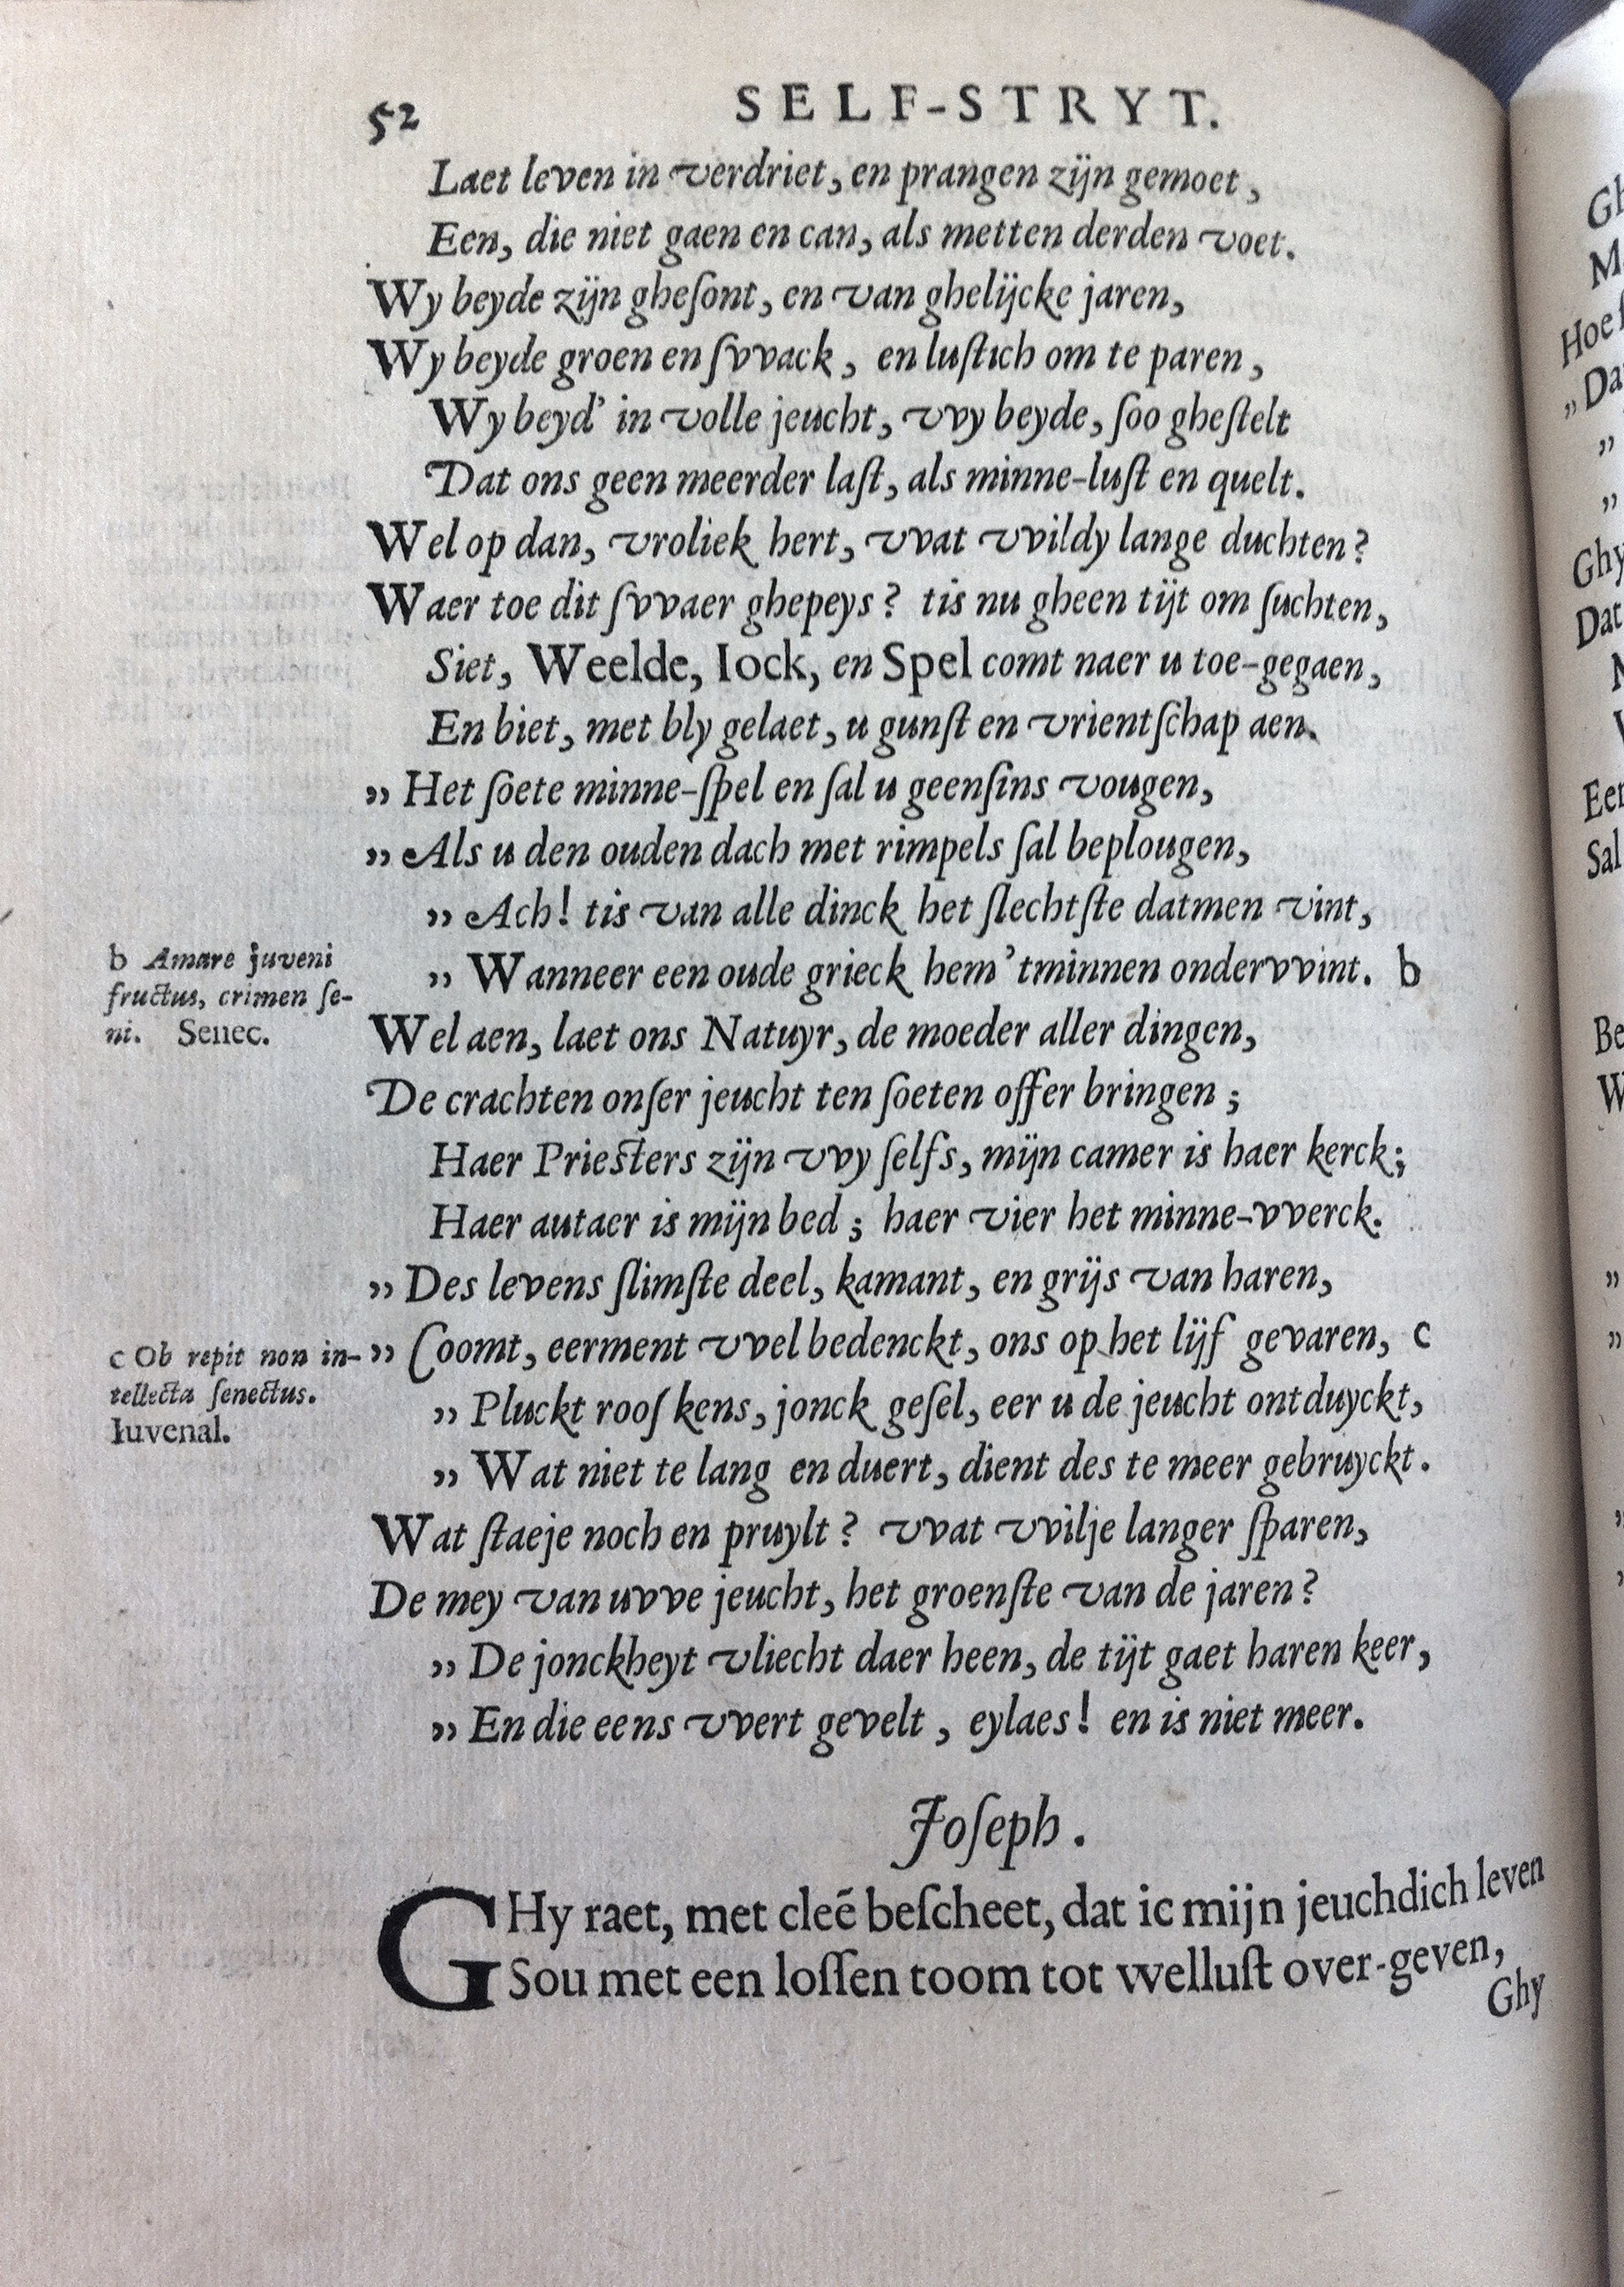 52
SELF-STRYT.
Laet leven in verdriet, en prangen zijn gemoet,
Een, die niet gaen en can, als metten derden voet.
Wy beyde zijn gheſont, en van ghelijcke jaren,
Wy beyde groen en ſvvack, en luſtich om te paren,
Wy beyd' in volle jeucht, vvy beyde, ſoo gheſtelt
Dat ons geen meerder laſt, als minne-luſt en quelt.
Wel op dan, vroliek hert, vvat vvildy lange duchten?
Waer toe dit ſvvaer ghepeys? tis nu gheen tijt om ſuchten,
Siet, Weelde, Iock, en Spel comt naer u toe-gegaen,
En biet, met bly gelaet, u gunſt en vrientſchap aen.
„ Het ſoete minne-ſpel en ſal u geenſins vougen,
„ Als u den ouden dach met rimpels ſal beplougen,
„ Ach! tis van alle dinck het ſlechtſte datmen vint,
„ Wanneer een oude grieck hem 'tminnen ondervvint. b
b Amare juveni
fructus, crimen ſe-
ni. Senec.
Wel aen, laet ons Natuyr, de moeder aller dingen,
De crachten onſer jeucht ten ſoeten offer bringen;
Haer Prieſters zijn vvy ſelfs, mijn camer is haer kerck;
Haer autaer is mijn bed; haer vier het minne-vverck.
„ Des levens ſlimſte deel, kamant, en grijs van haren,
„ Coomt, eerment vvel bedenckt, ons op het lijf gevaren, c
c Ob repit non in-
tellecta ſenectus.
Iuvenal.
„ Pluckt rooſkens, jonck geſel, eer u de jeucht ontduyckt,
„ Wat niet te lang en duert, dient des te meer gebruyckt.
Wat ſtaeje noch en pruylt? vvat vvilje langer ſparen,
De mey van uvve jeucht, het groenſte van de jaren?
„ De jonckheyt vliecht daer heen, de tijt gaet haren keer,
„ En die eens vvert gevelt, eylaes! en is niet meer.
Joſeph.
GHy raet, met cleẽ beſcheet, dat ic mijn jeuchdich leven
Sou met een loſſen toom tot welluſt over-geven,
Ghy